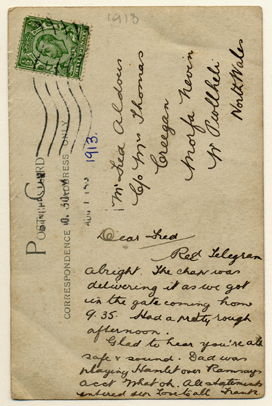 1913
1913.
POST CARD
CORRESPONDENCE
ADDRESS ONLY
AUG 1
Mr Fred Aldous
C/o Mrs Thomas
Creegan
Morfa Nevin
Nr Pwllheli
North Wales
Dear Fred
Recd Telegram
alright. The chap was
delivering it as we got
in the gate coming from
9.35. Had a pretty rough
afternoon.
Glad to hear you're all
safe & sound. Dad was
playing Hamlet over Ramsay
acct What oh. All statements
entered